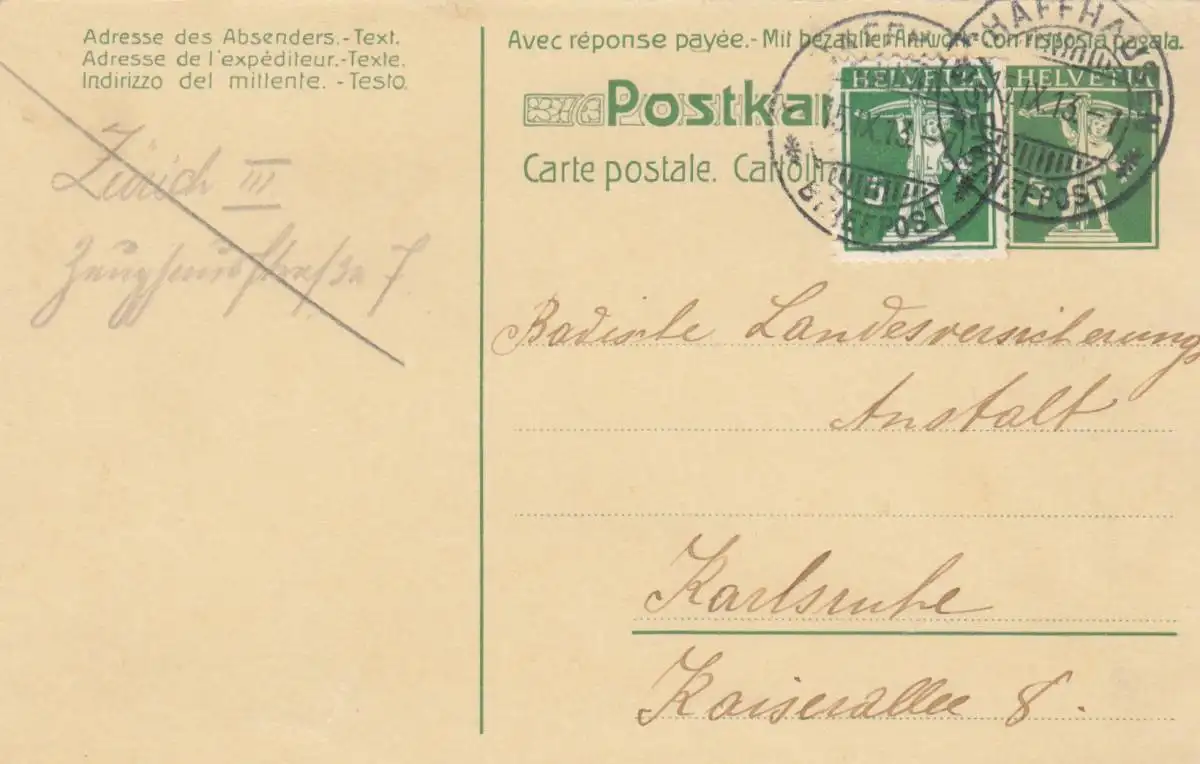 Adresse des Absenders.-Text.
Adresse de l'expéditeur.-Texte.
Indirizzo del mittente. -Testo.
Zürich III
Zeughausstraße 7
Avec réponse payée.- Mit bezahlter Antwort- Con risposta pagata.
Postkar
Carte postale. Cartolin
HELVETIA
5
HELVETIA
5
BRIEFPOST
SCHAFFHAUSEN
IX.13.
BRIEFPOST
Badische Landesversicherung
Anstalt
Karlsruhe
Kaiserallee 8.